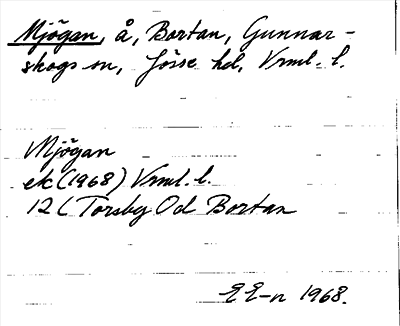 Mjögan, å, Bortan, Gunnar-
skogs sn, Jösse hd, Vrml. l.
Mjögan
ek (1968) Vrml. l.
12 C Torsby Od Bortan
EE-n 1968.